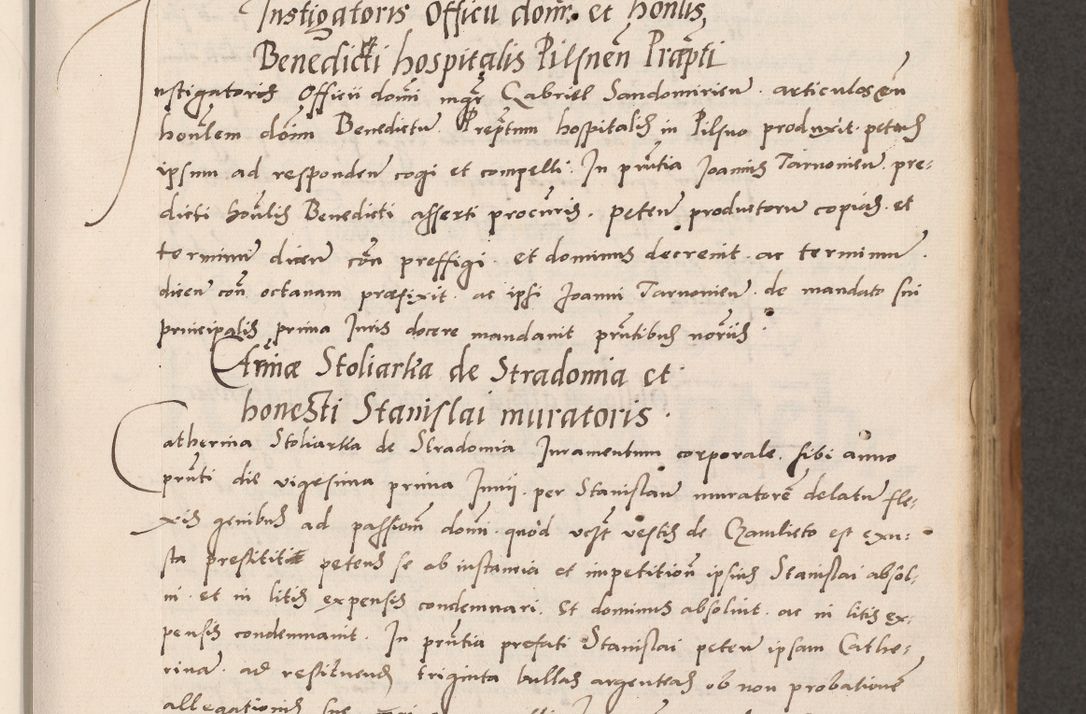 Instigatoris Officii domi. et honlis
Benedicti hospitalis Pilsnen Prapti
Instigatoris Officii domi mgr Gabriel Sandomirien. articulos cu
honlem doim Benedictu Preptum hospitalis in Pilsno produxit. petens
ipsum ad responden cogi et compelli. In prntia Joannis Tarnonien. pre-
dicti honlis Benedicti asserti procuris. peten productoru copias. et
terminu dicen con preffigi. et dominus decrevit. ac terminu.
dicen con octavam præfixit. ac ipsi Joanni Tarnonien. de mandato sui
principalis prima Juris docere mandavit prntibus noriis.
Annæ Stoliarka de Stradomia et
honesti Stanislai muratoris.
Catherina Stoliarka de Stradomia Juramentum corporale. sibi anno
prnti die vigesima prima Junij. per Stanislau muratore delatu fle-
xis genibus ad passiom domi. quod vestis de Czamlieto est exu-
sta prestitit petens se ab instancia et impetition ipsius Stanislai absol-
ui. et in litis expensis condemnari. Et dominus absolvit. ac in litis ex-
pensis condemnavit. In prntia prefati Stanislai peten ipsam Cathe-
rina. ad restituend triginta bullas argenteas ob non probatione
allegationis sue